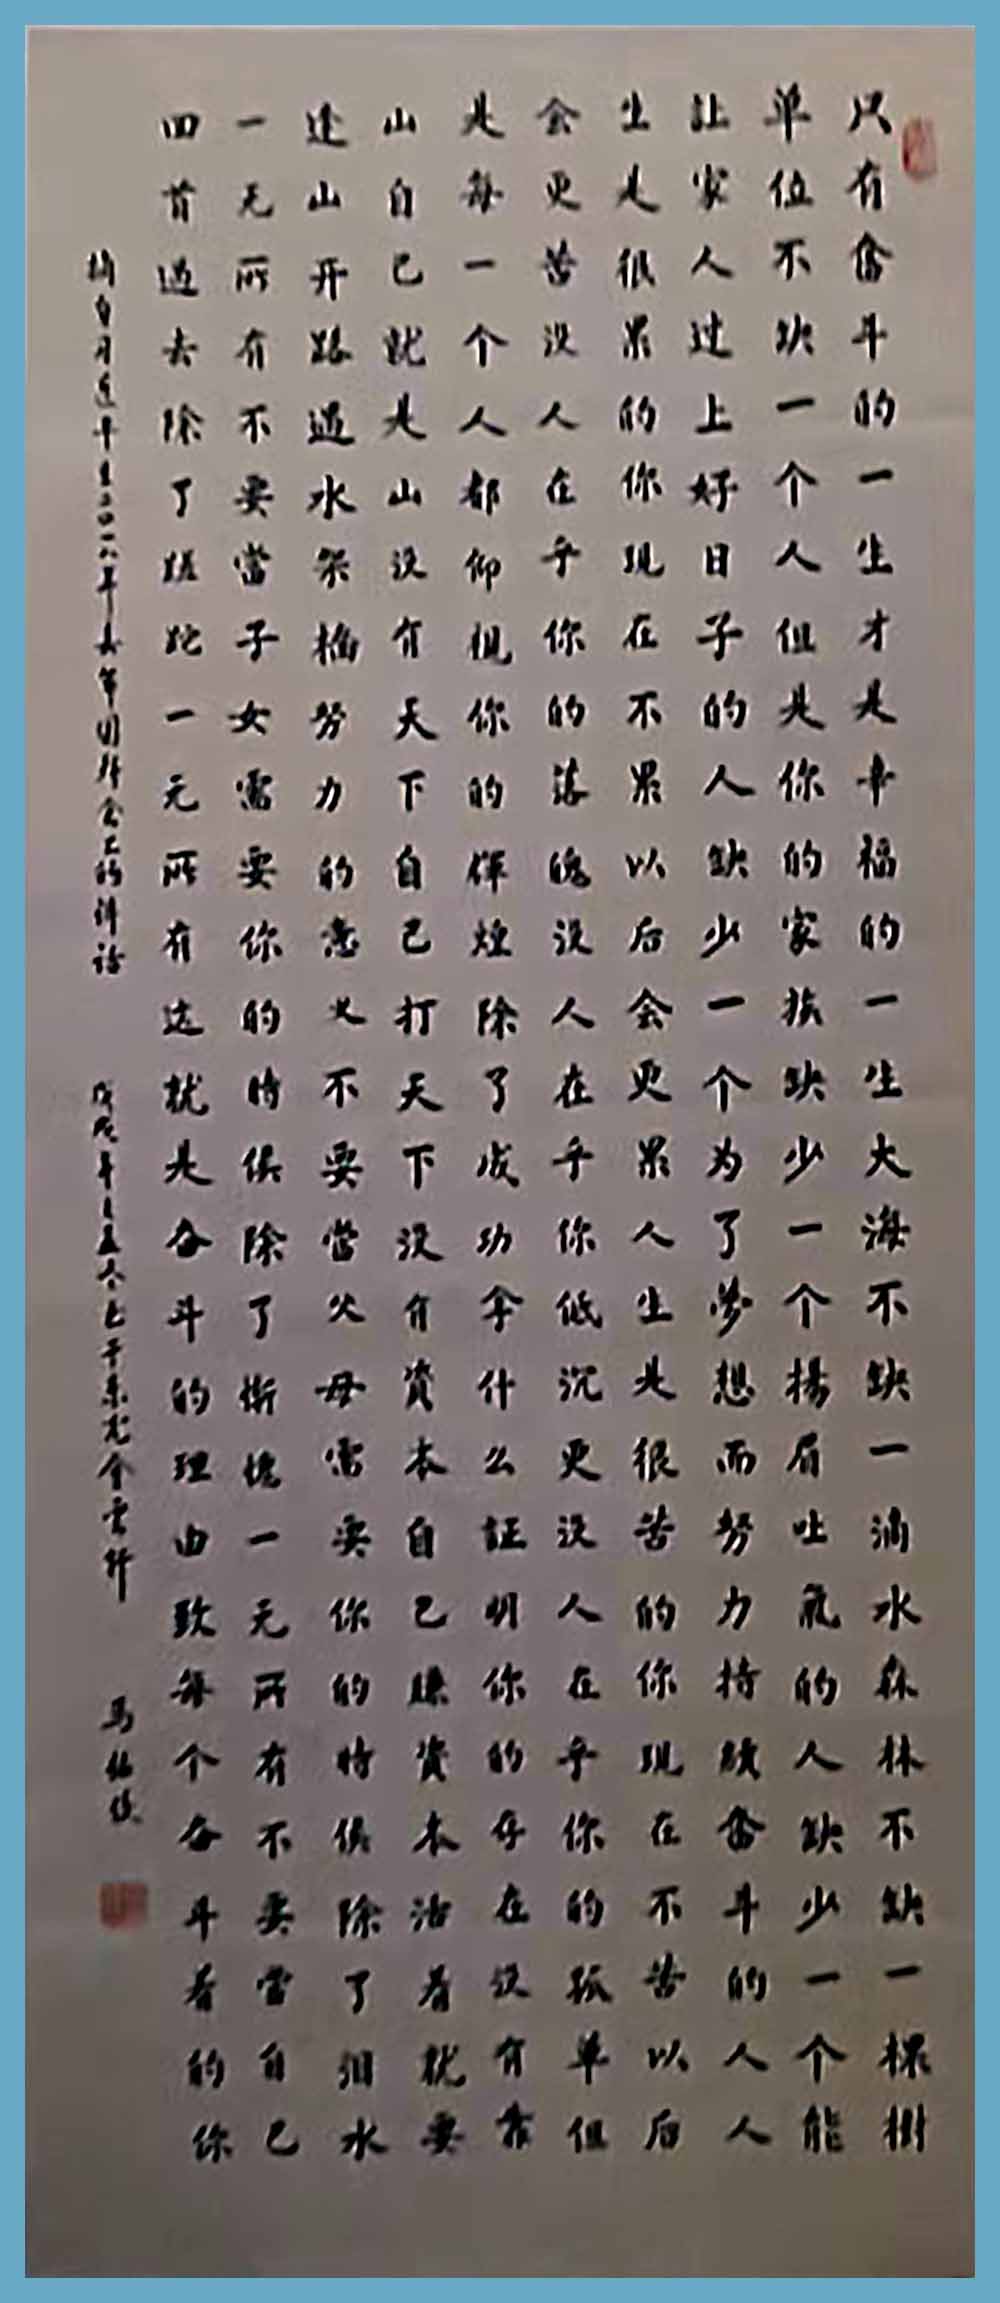 只有奮斗的一生才是幸福的一生大海不缺一滴水森林不缺一棵樹
单位不缺一个人但是你的家族缺少一个揚眉吐氣的人缺少一个能
让家人过上好日子的人缺少一个为了梦想而努力持续奮斗的人人
生是很累的你现在不累以后会更累人生是很苦的你现在不苦以后
会更苦没人在乎你的落魄没人在乎你低沉更没人在乎你的孤单但
是每一个人都仰视你的辉煌除了成功拿什么証明你的存在没有靠
山自己就是山没有天下自己打天下没有資本自己賺資本活着就要
逢山开路遇水架橋努力的意义不要當父母需要你的時候除了泪水
一无所有不要當子女需要你的時候除了慚愧一无所有不要當自己
回首過去除了蹉跎一无所有这就是奋斗的理由致每个奋斗着的你
摘自习近平二〇一八年春节团拜会上的讲话 戊戌年 马